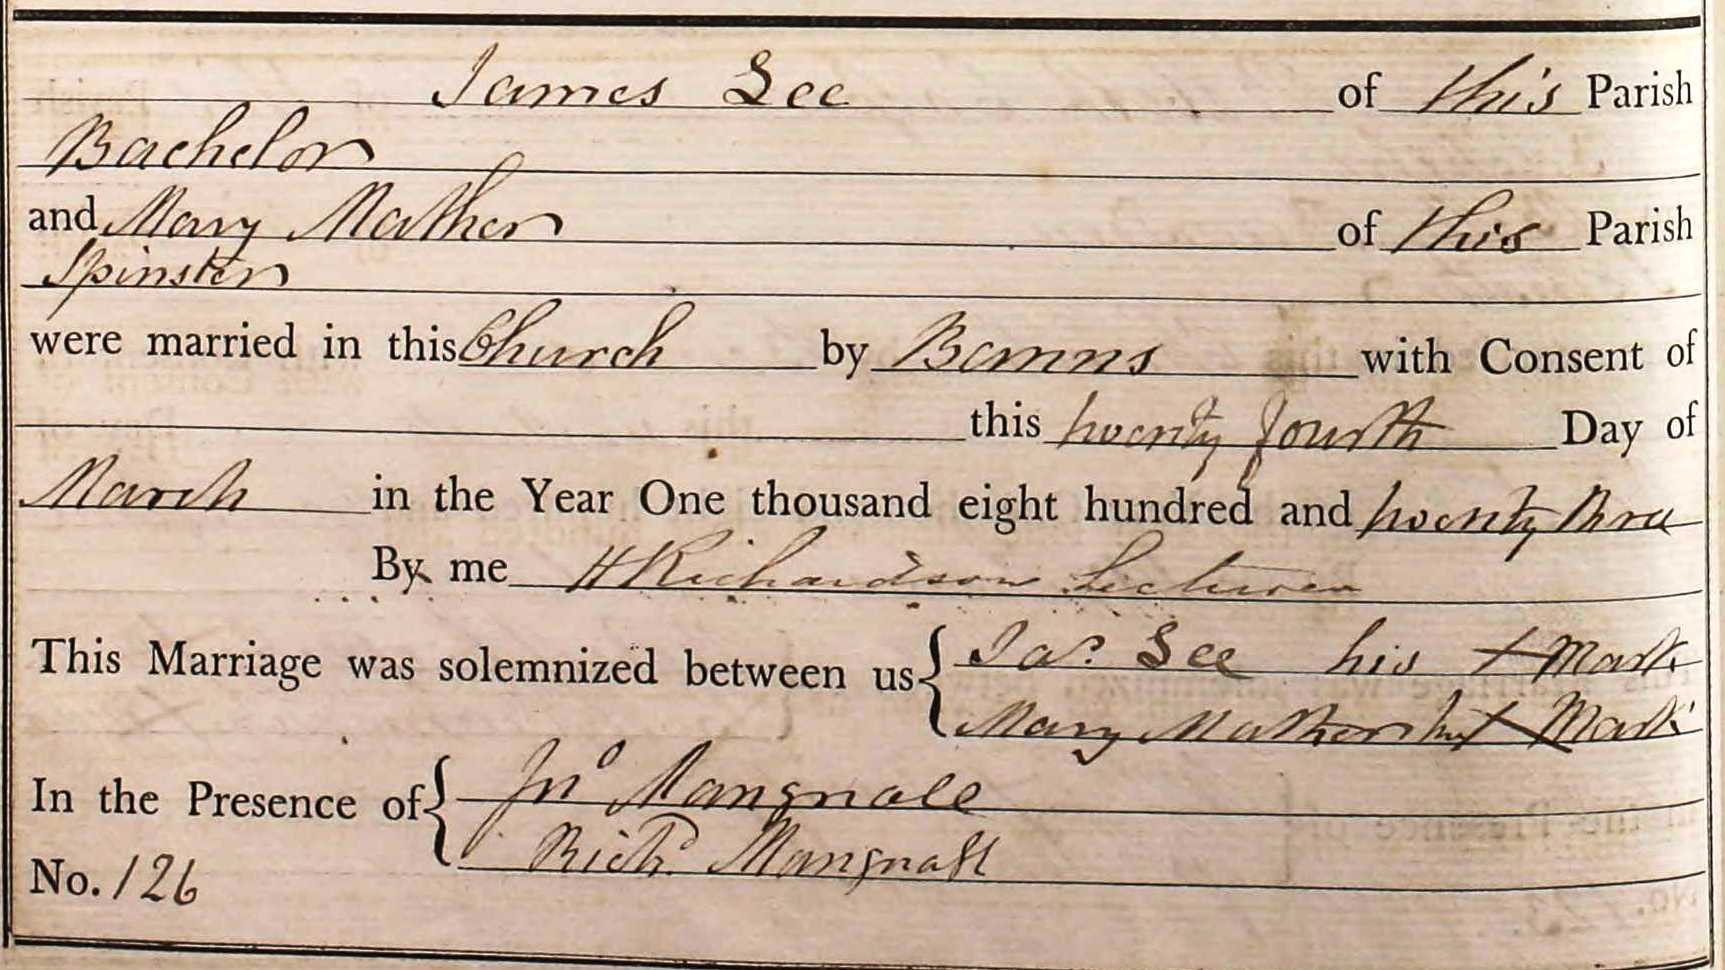 James Lee of this Parish
Bachelor
and Mary Mather of this Parish
Spinster
were married in this Church by Banns with Consent of
this twenty fourth Day of
March in the Year One thousand eight hundred and twenty three
By me H Richardson Lecturer
This Marriage was solemnized between us { Jas. Lee his X Mark
Mary Mather her X Mark
In the Presence of { Jno Mangnall
Richd Mangnall
No. 126